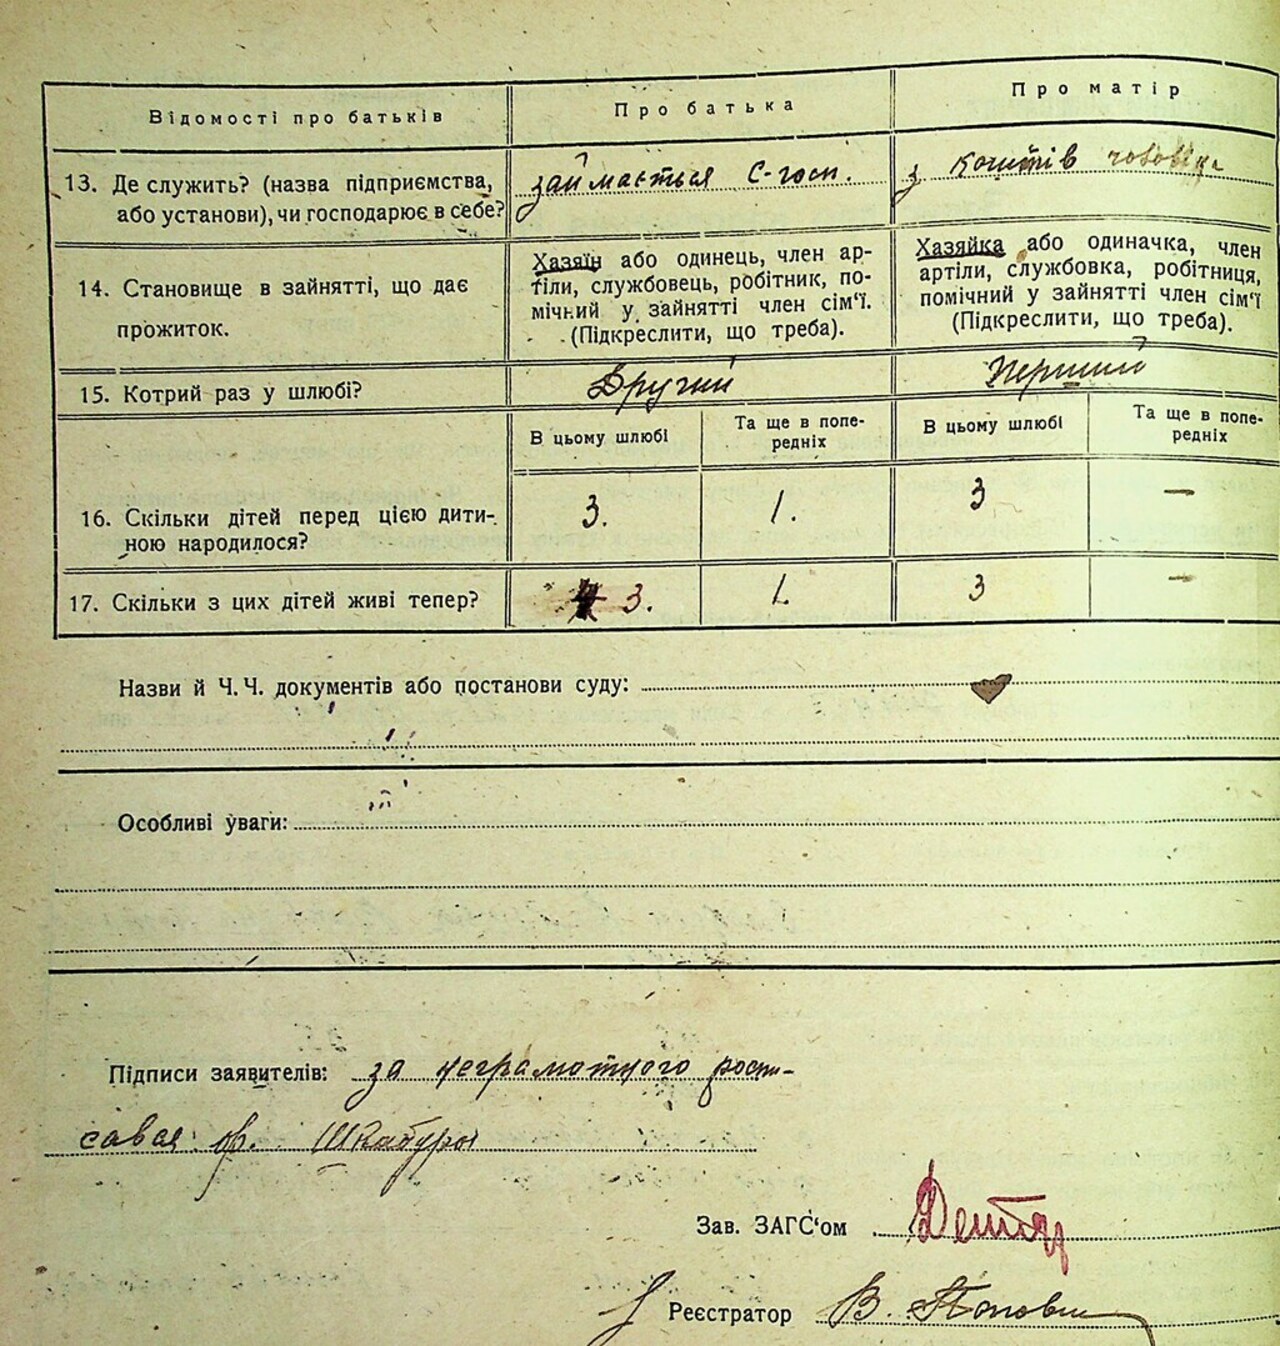 Відомості про батьків
Про батька
Про матір
13. Де служить? (назва підприємства, або установи), чи господарює в себе?
займається С-госп.
з коштів чоловіка
14. Становище в зайнятті, що дає прожиток.
Хазяїн або одинець, член ар-
тіли, службовець, робітник, по-
мічний у зайнятті член сім'ї.
(Підкреслити, що треба).
Хазяйка або одиначка, член
артіли, службовка, робітниця,
помічний у зайнятті член сім'ї
(Підкреслити, що треба).
15. Котрий раз у шлюбі?
Другий
Перший
В цьому шлюбі
Та ще в попе-
редніх
В цьому шлюбі
Та ще в попе-
редніх
16. Скільки дітей перед цією дити-
ною народилося?
3.
1.
3
—
17. Скільки з цих дітей живі тепер?
3.
1.
3
—
Назви й Ч.Ч. документів або постанови суду:
Особливі уваги:
Підписи заявителів: за неграмотного роспи-
савсь ф. Шкапура
Зав. ЗАГС'ом
Реєстратор В.